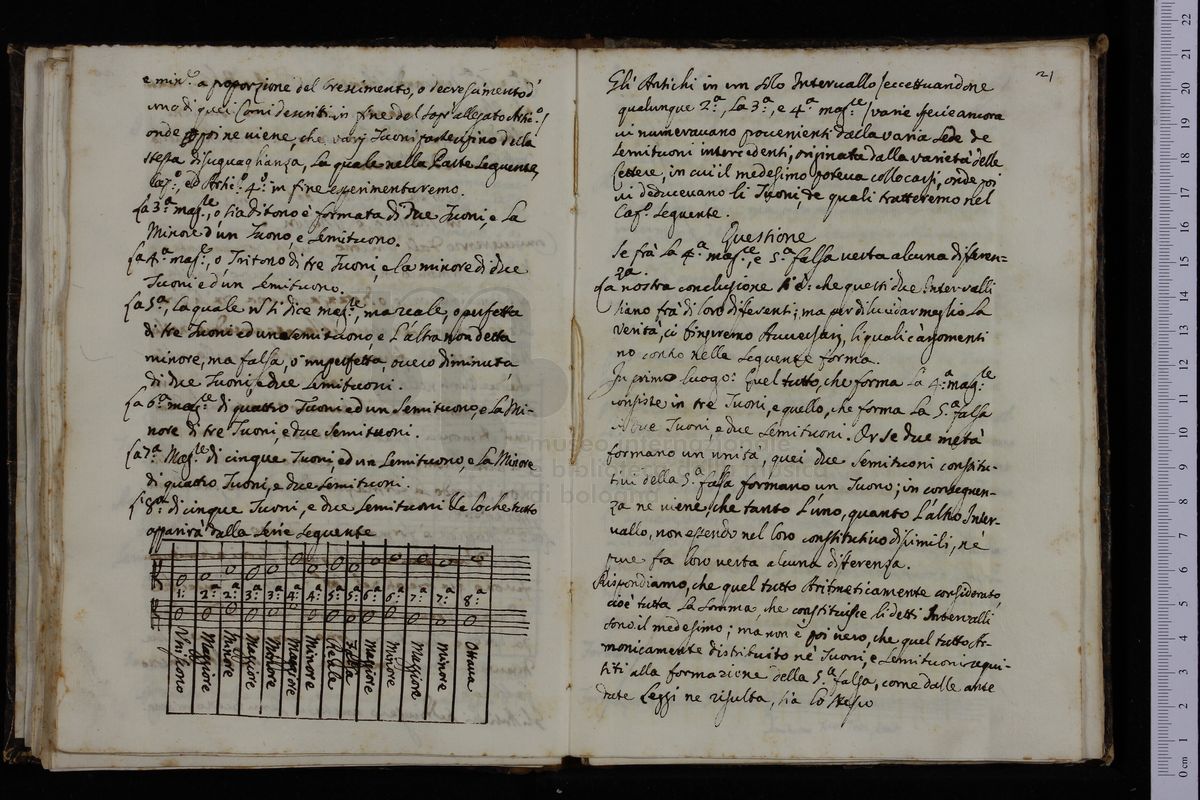 e min.e a proporzione del Crescimento, o decrescimento d'
uno di quei Comi descritti in fine del sop.o allegato Arti.o /
onde poi ne viene, che varj Tuoni partecipino della
stessa disuguaglianza, la quale nella Parte seguente,
Cap.o, ed Arti.o 4.o in fine esperimentaremo.
La 3.a mag.re, o sia ditono è formata di due Tuoni, e la
Minore d'un Tuono, e Semituono.
La 4.a mag.re, o Tritono di tre Tuoni, e la minore di due
Tuoni ed un Semituono.
La 5.a, la quale si dice mag.re, ma reale, o perfetta
di tre Tuoni ed un Semituono, e l'altra non detta
minore, ma falsa, o imperfetta, overo diminuta
di due Tuoni, e due Semituoni.
La 6.a mag.re di quattro Tuoni ed un Semituono, e la Mi-
nore di tre Tuoni, e due Semituoni.
La 7.a Mag.re di cinque Tuoni, ed un Semituono, e la Minore
di quattro Tuoni, e due Semituoni.
L'8.a di cinque Tuoni, e due Semituoni lo che tutto
apparirà dalla Serie seguente
1.a 2.a 2.a 3.a 3.a 4.a 4.a 5.a 5.a 6.a 6.a 7.a 7.a 8.a
Unisono
Maggiore
Minore
Maggiore
Minore
Maggiore
Minore
Reale
Falsa
Maggiore
Minore
Maggiore
Minore
Ottava
21
Gli Antichi in un solo Intervallo / eccettuandone
qualunque 2.a, la 3.a, e 4.a mag.re / varie specie ancora
vi numeravano provenienti dalla varia sede de
Semituoni intercedenti, originata dalla varietà delle
Lettere, in cui il medesimo poteva collocarsi, onde poi
vi deducevano li Tuoni, de quali tratteremo nel
Cap.o seguente.
Questione
Se frà la 4.a mag.re, e 5.a falsa verta alcuna differen-
za.
La nostra conclusione si è: che questi due Intervalli
siano frà di loro differenti; ma per dilucidar meglio la
verità, ci fingiremo Avversarj, li quali c'argomenti
no contro nella seguente forma.
In primo luogo: Quel tutto, che forma la 4.a mag.re
consiste in tre Tuoni, e quello, che forma la 5.a falsa
in due Tuoni, e due Semituoni. Or se due metà
formano un unità, quei due Semituoni constitu-
tivi della 5.a falsa formano un Tuono; in conseguen-
za ne viene, che tanto l'uno, quanto l'altro Inter-
vallo, non essendo nel loro constitutivo dissimili, né
pure fra loro verta alcuna differenza.
Rispondiamo, che quel tutto Aritmeticamente considerato,
cioè tutta la somma, che constituisce li detti Intervalli
sono il medesimo; ma non è poi vero, che quel tutto Ar-
monicamente distribuito né Tuoni, e Semituoni requi-
siti alla formazione della 5.a falsa, come dalle ante
date Leggi ne risulta, sia lo stesso
museo internazionale
e biblioteca della musica
di bologna